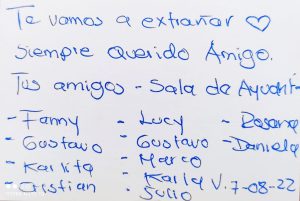 Te vamos a extrañar ♡
Siempre Querido Amigo.
Tus amigos - Sala de Ayudant-
- Fanny - Lucy - Rosana
- Gustavo - Gustavo - Daniela
- Karlita - Marco
- Cristian - Karla V. 7-08-22
- Julio